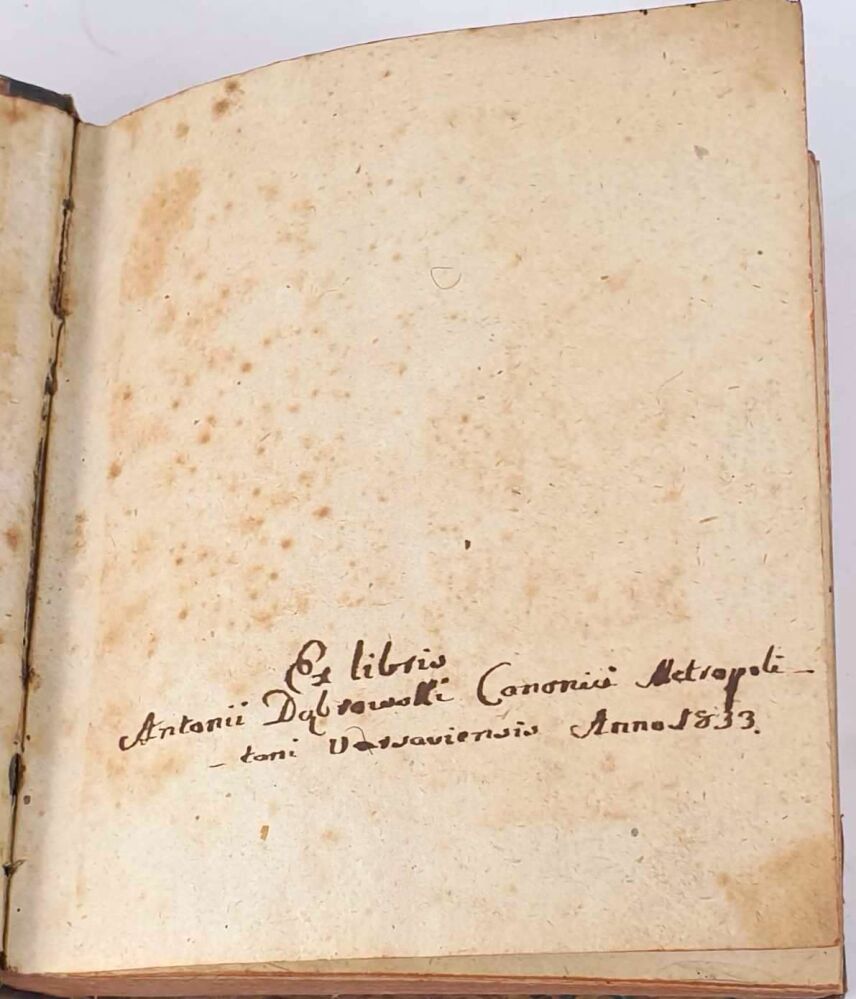 Ex libris
Antonii Dąbrowski Canonici Metropoli-
-tani Varsaviensis Anno 1833.